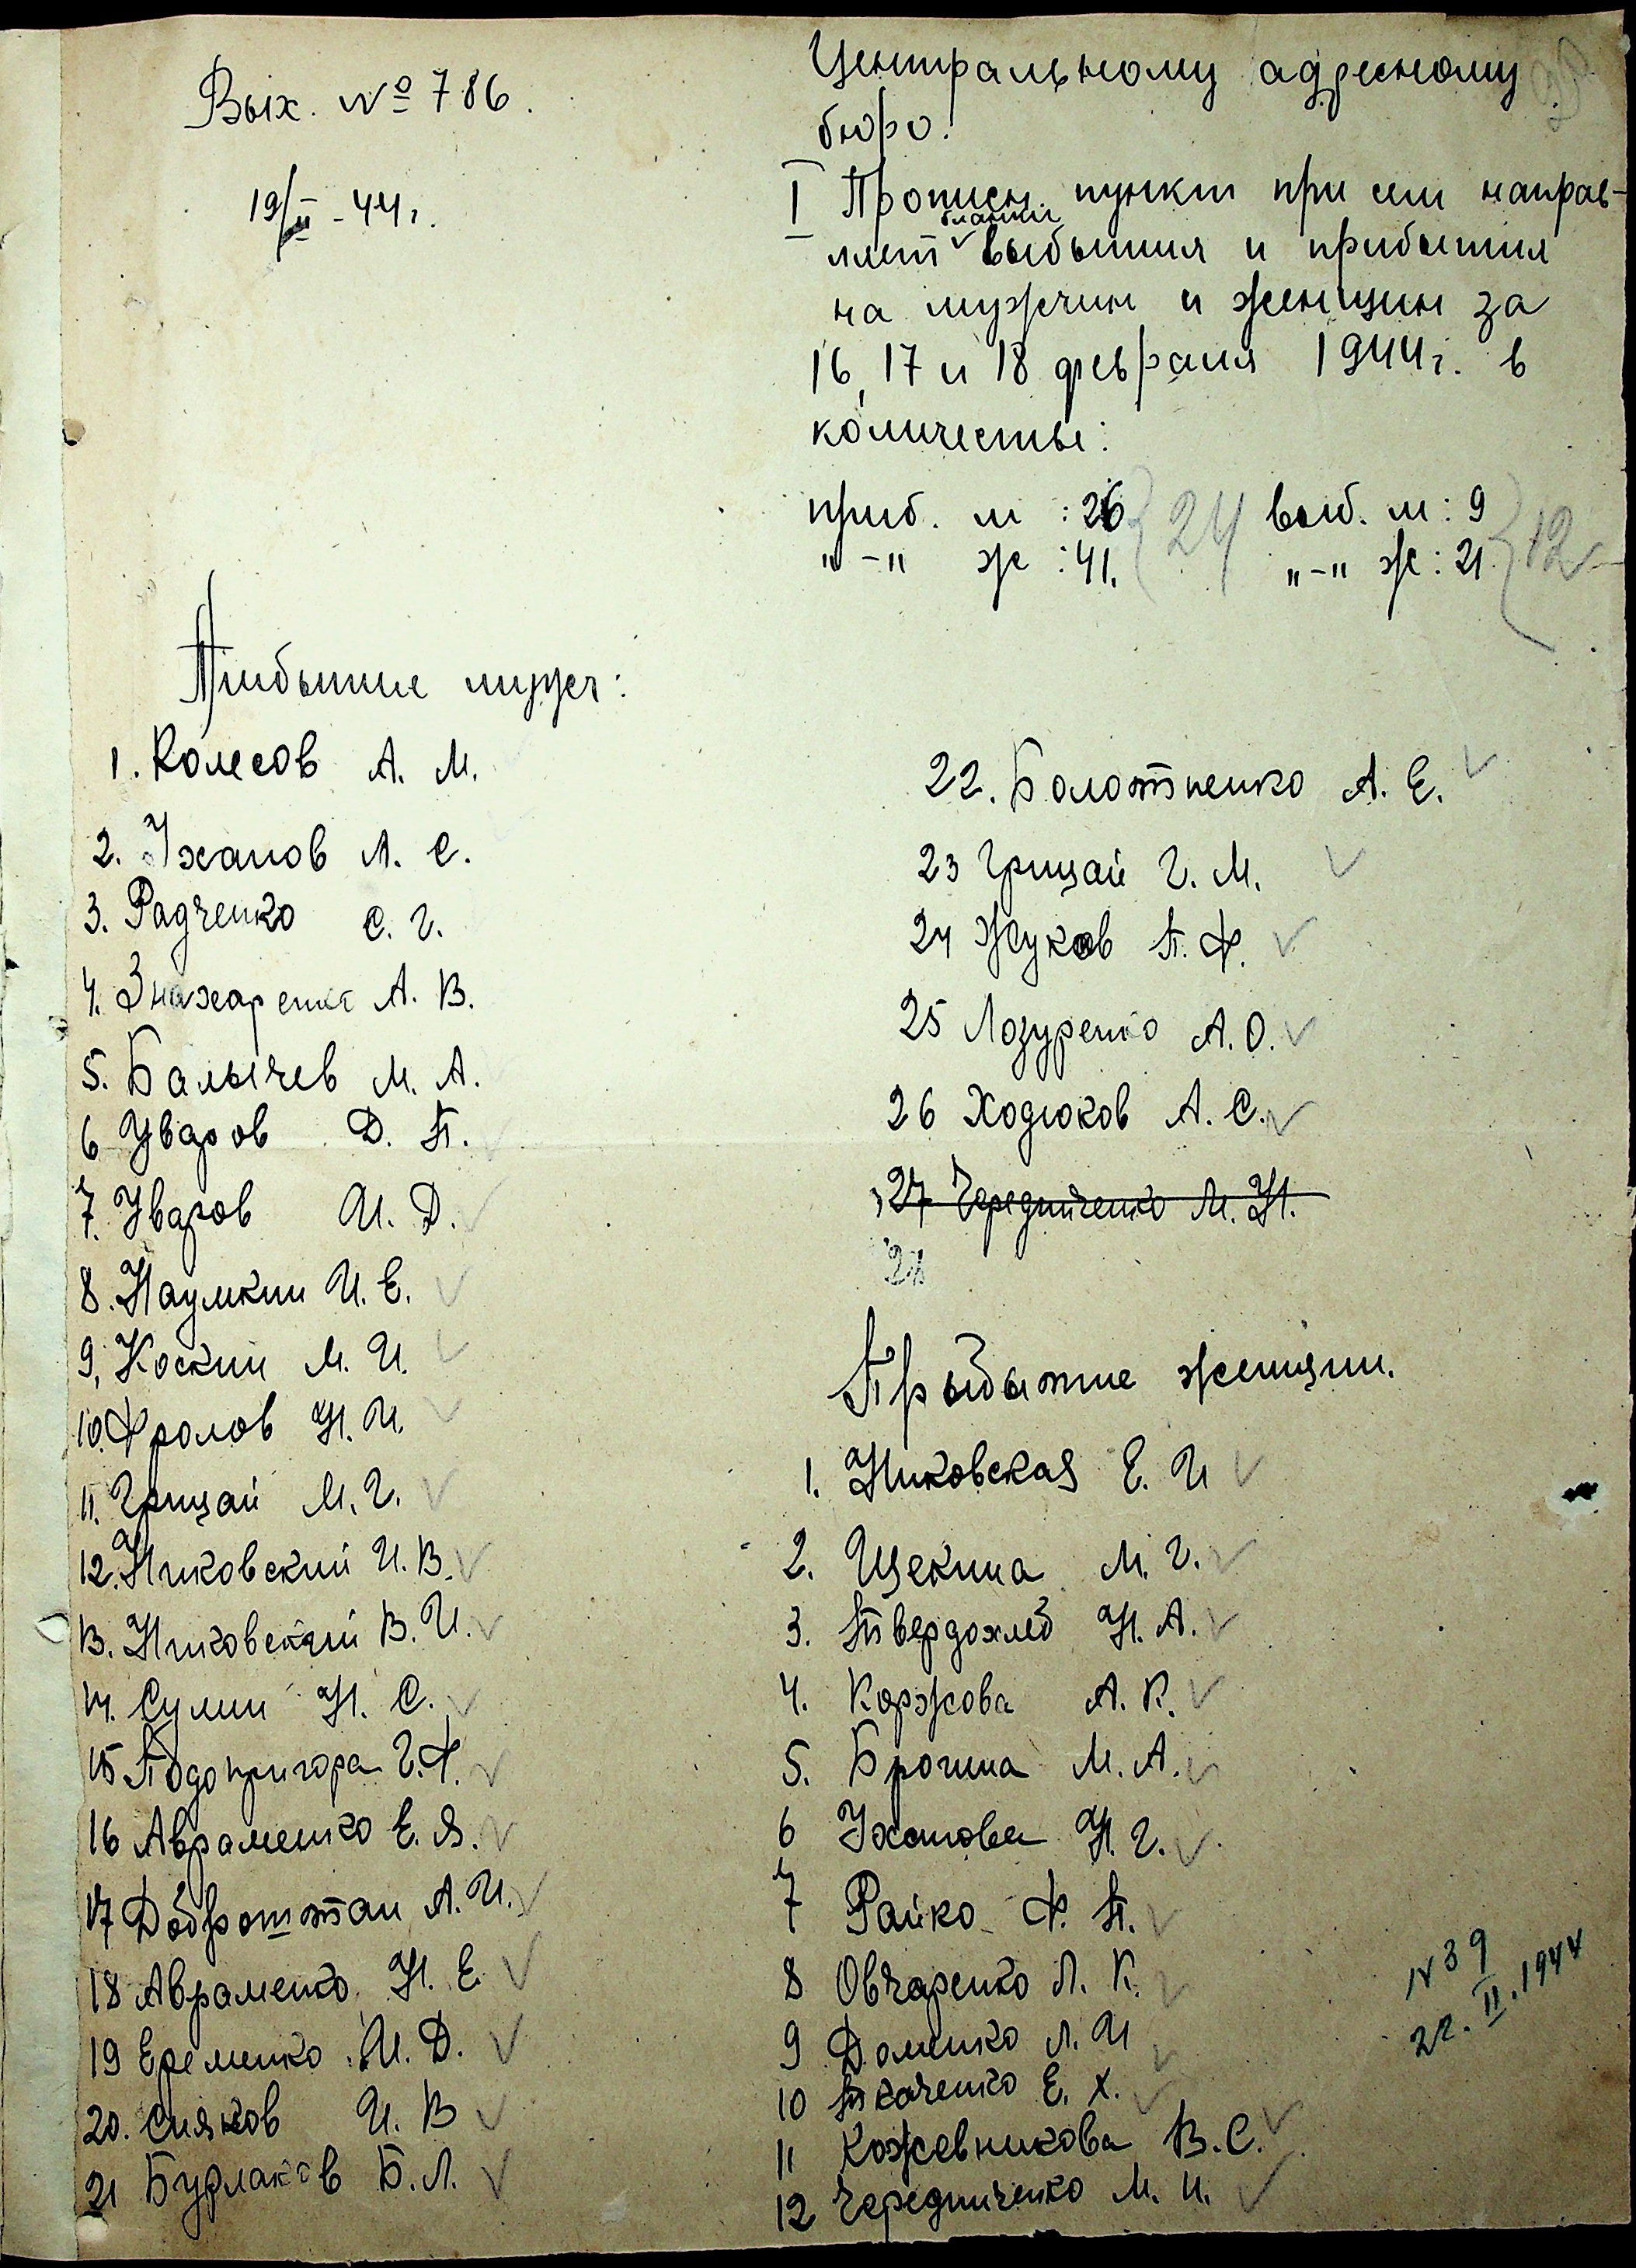 Вых. № 786.
19/II - 44 г.
Центральному адресному
бюро.
I Прописн. пункт при сем направ-
бланки
ляет выбытия и прибытия
на мужчин и женщин за
16, 17 и 18 февраля 1944 г. в
количестве:
приб. м : 26 24 выб. м : 9 12
"-" ж : 41. "-" ж : 21
Прибытие мужч:
1. Колесов А. М.
2. Уханов А. С.
3. Радченко С. Г.
4. Знахаренко А. В.
5. Балычев М. А.
6 Уваров Д. П.
7. Уваров И. Д.
8. Наумкин И. Е.
9. Коскин М. И.
10. Фролов Н. И.
11. Грицай М. Г.
12. Никовский И. В.
13. Никовский В. И.
14. Сумин Н. С.
15 Подопригора Г. Ф.
16 Авраменко Е. Я.
17 Доброштан А. И.
18 Авраменко Н. Е
19 Еременко И. Д.
20. Сияков И. В
21 Бурлаков Б. Л.
22. Болотненко А. Е.
23 Грицай Г. М.
24 Жуков П. Ф.
25 Лозуренко А. О.
26 Ходюков А. С.
27 Чередниченко М. Н.
28
Прыбытие женщин.
1. Никовская Е. И
2. Щекина М. Г.
3. Твердохлеб Н. А.
4. Коржова А. К.
5. Брогина М. А.
6 Уханова Н. Г.
7 Райко Ф. П.
8 Овчаренко Л. К.
9 Доменко Л. И
10 Ткаченко Е. Х.
11 Кожевникова В. С.
12 Чередниченко М. И.
N 39
22. II. 1944